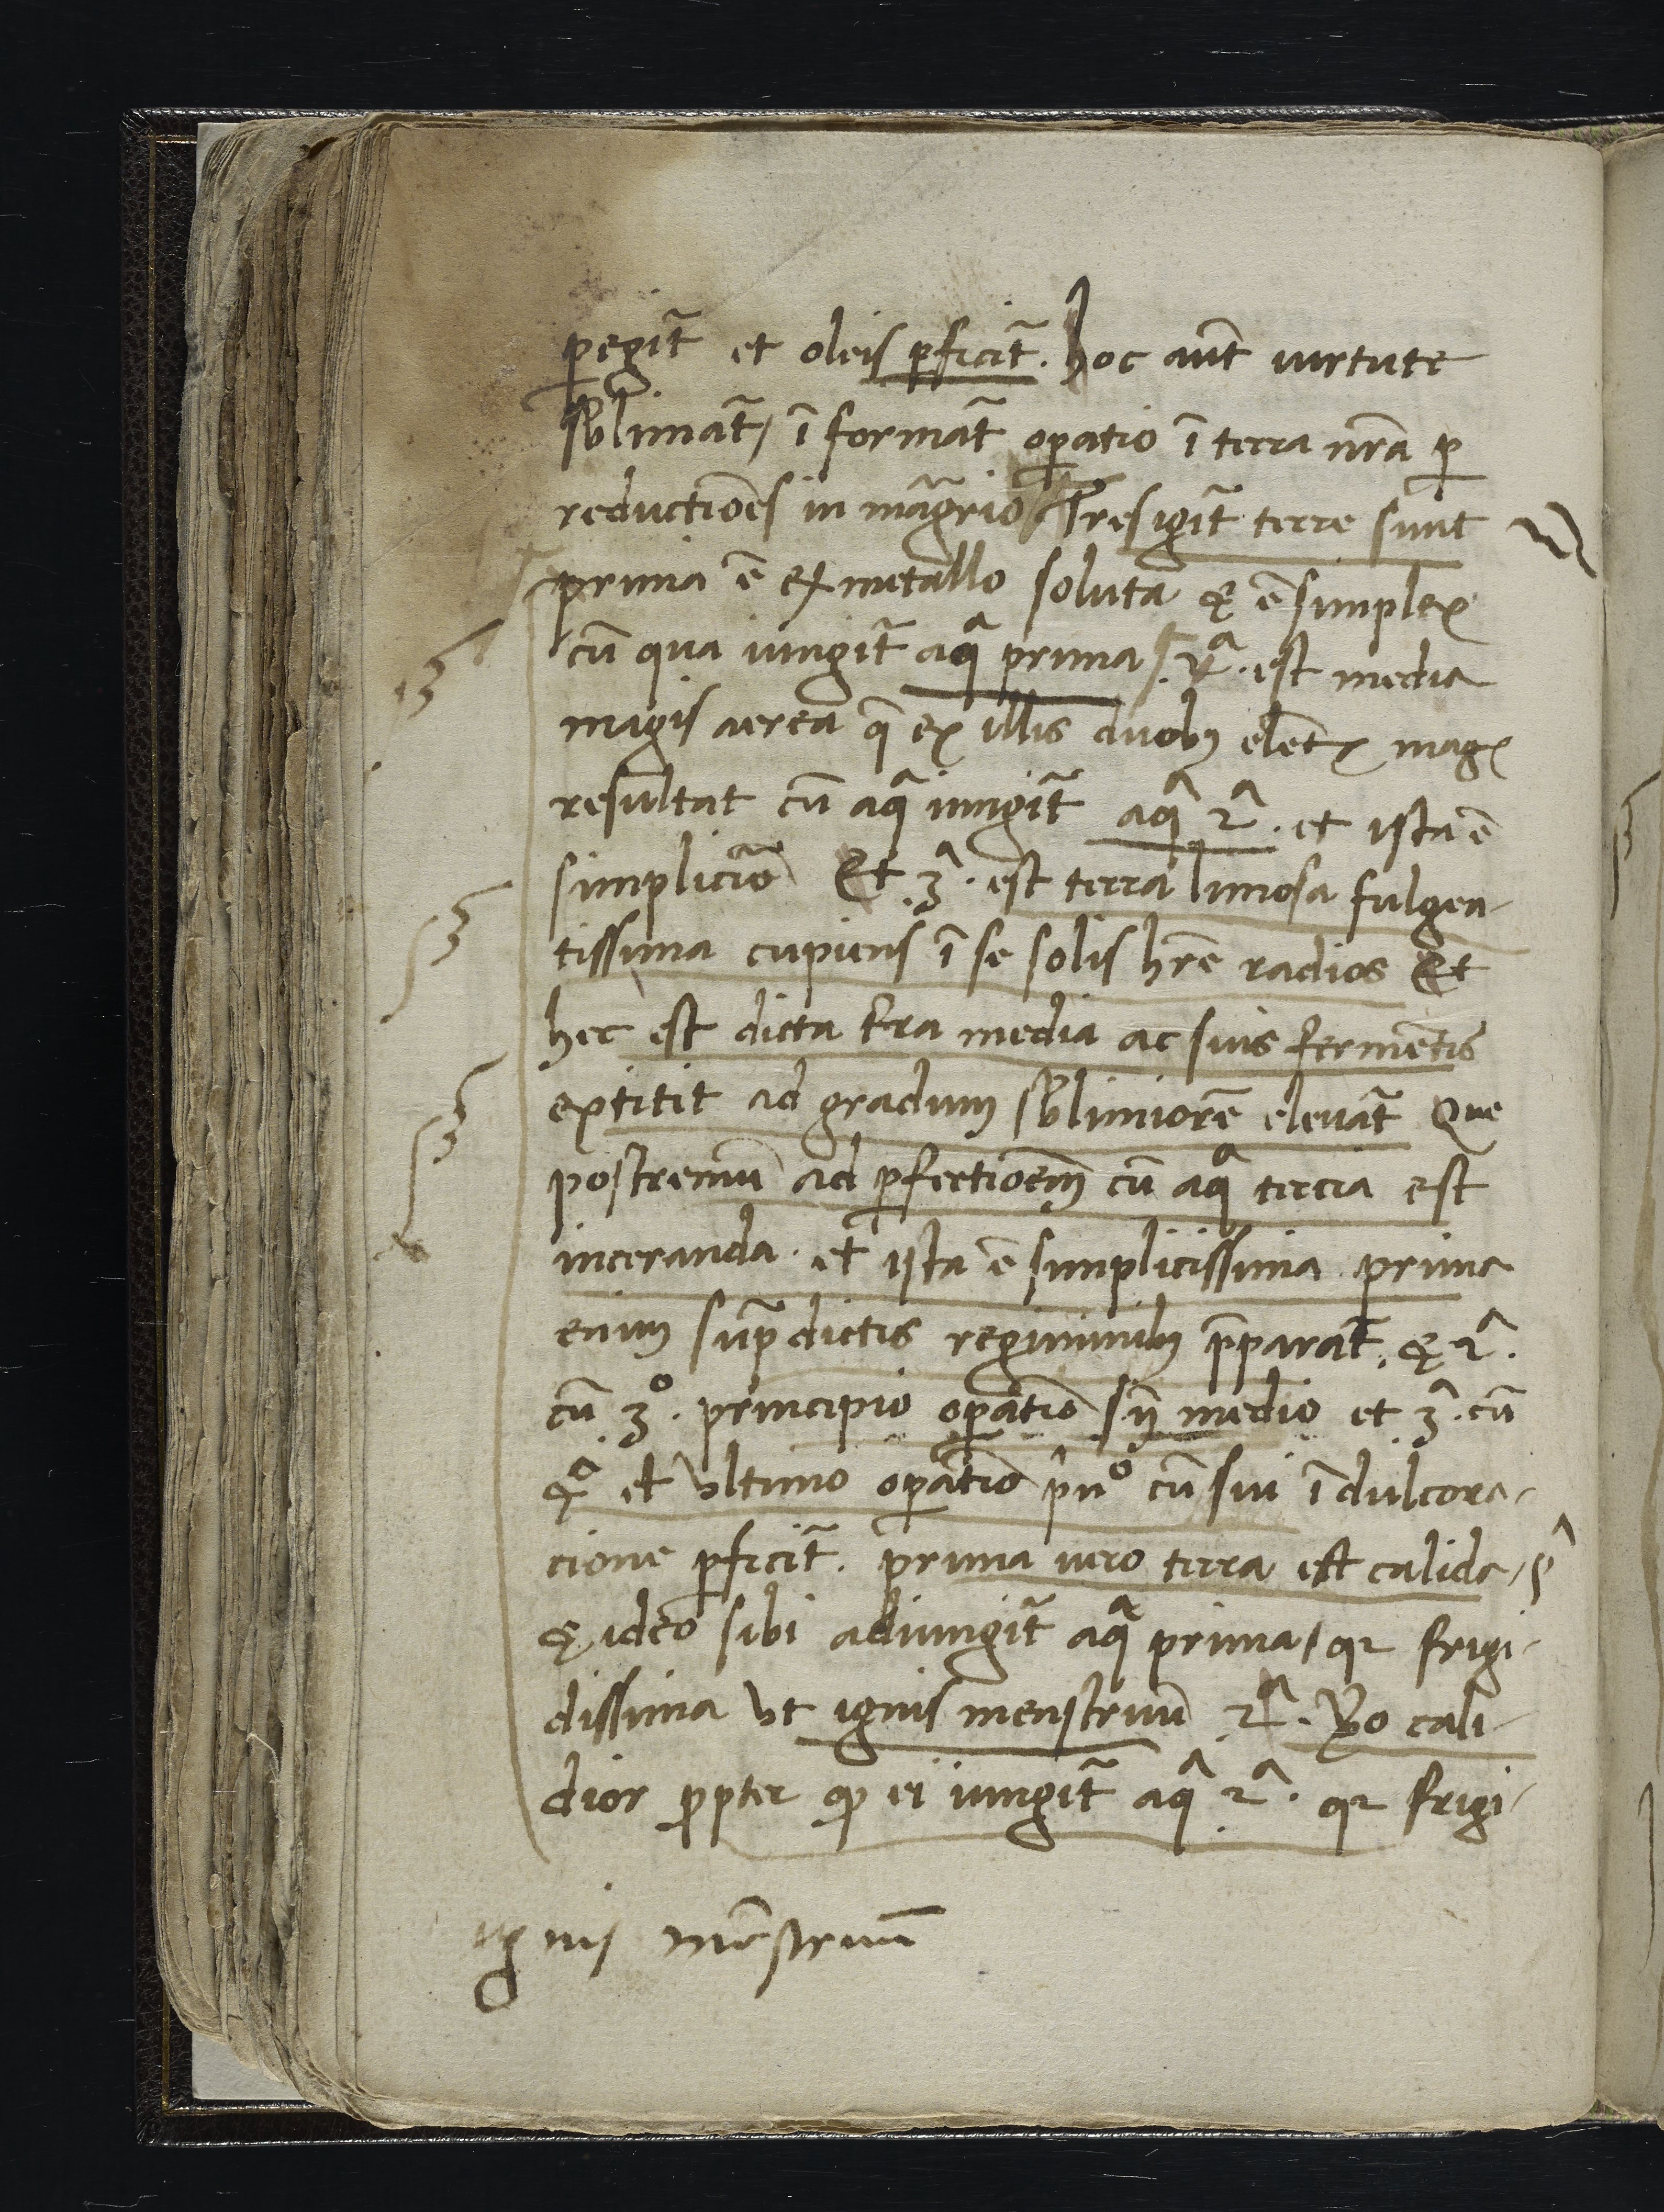 ꝑegit̃ et oleis ꝑficit̃. hoc aut̃ uirtute
sb̃limat̃, ĩ format̃ oꝑatio ĩ terra nr̃a ꝑ
reductiões in mãgrio Tres igit̃ terre sunt
prima ẽ ex metallo soluta & ẽ simplex
cũ qua iungit̃ aqᵃ prima .2ᵃ. est media
magis aerea q̃ ex illis duobꝫ elet̃ mag
resultat cũ aqᵃ iungit̃ aqᵃ 2ᵃ. et ista ẽ
simpliciõ Et .3ᵃ. est terra limosa fulgen-
tissima cupiens ĩ se solis hr̃e radios Et
hec est dicta t̃ra media ac suis fermẽtis
extitit ad gradum sb̃limiorẽ eleuat̃ Que
postremũ ad ꝑfectioem̃ cũ aqᵃ tercia est
inceranda. et ista ẽ simplicissima prima
enim sup̃dictis regiminibꝫ p̃parat̃. & 2ᵃ.
cũ 3º. principio oꝑatiõ s. ĩ medio et 3ᵃ. cũ
4º et vltimo oꝑatiõ pñº cũ sui ĩdulcora-
cione ꝑficit̃. prima uero terra est calida,
& ideo sibi adiungit̃ aqᵃ prima, qꝛ frigi-
dissima vt ignis menstruũ 2ᵃ. v̊o cali-
dior ꝓpter qꝫ ei iungit̃ aqᵃ 2ᵃ. qꝛ frigi-
ignis mẽstruũ